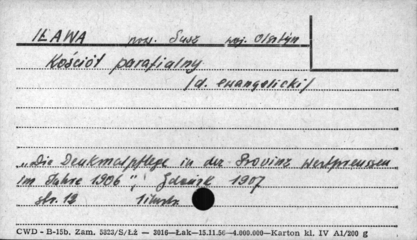 IŁAWA pow. Susz woj. Olsztyn
Kościół parafialny
/d. ewangelicki/
"Die Denkmalpflege in der Provinz Westpreussen
im Jahre 1906", Gdańsk 1907
str. 12 1 ilustr.
CWD - B-15b. Zam. 5823/S/Łż — 3016—Łak—15.11.56—4.000.000—Karton kl. IV A1/200 g